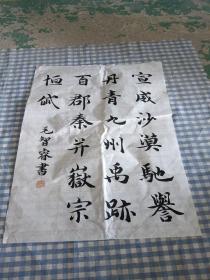 宣威沙漠馳譽
丹青九州禹跡
百郡秦并嶽宗
恒岱
毛智睿書